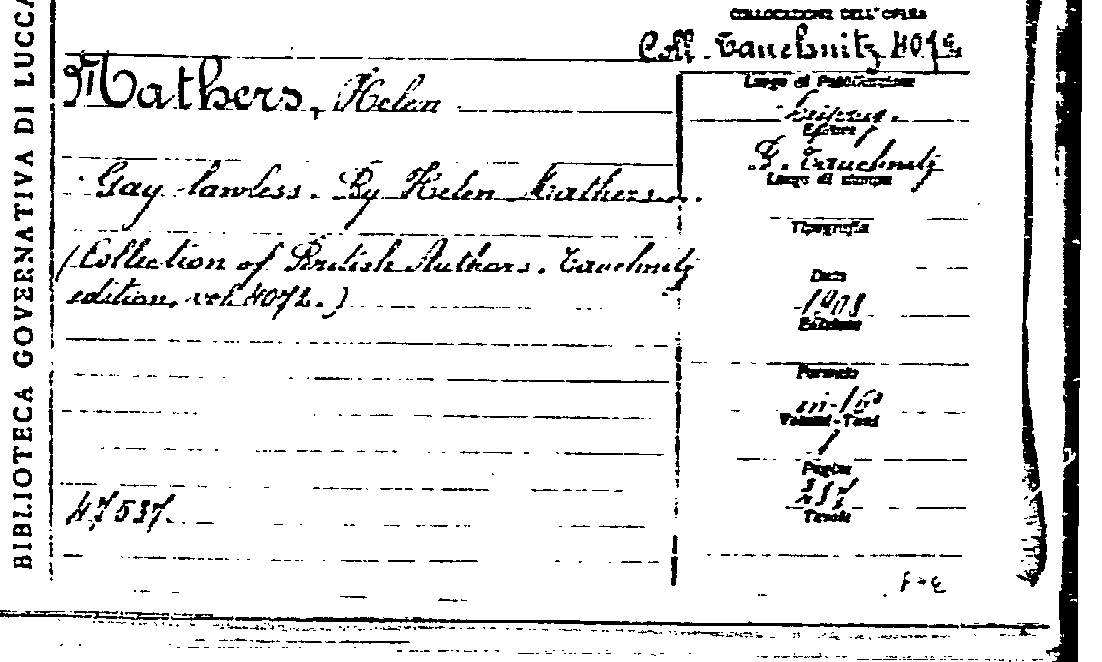 BIBLIOTECA GOVERNATIVA DI LUCCA
COLLOCAZIONE DELL'OPERA
Coll. Tauchnitz 4072
Mathers, Helen
Gay lawless. By Helen Mathers.
(Collection of British Authors. Tauchnitz
edition. vol. 4072.)
47537
Luogo di Pubblicazione
Leipzig.
Editore
B. Tauchnitz
Luogo di stampa
Tipografia
Data
1908
Edizione
Formato
in-16°
Volumi-Tomi
1
Pagine
Tavole